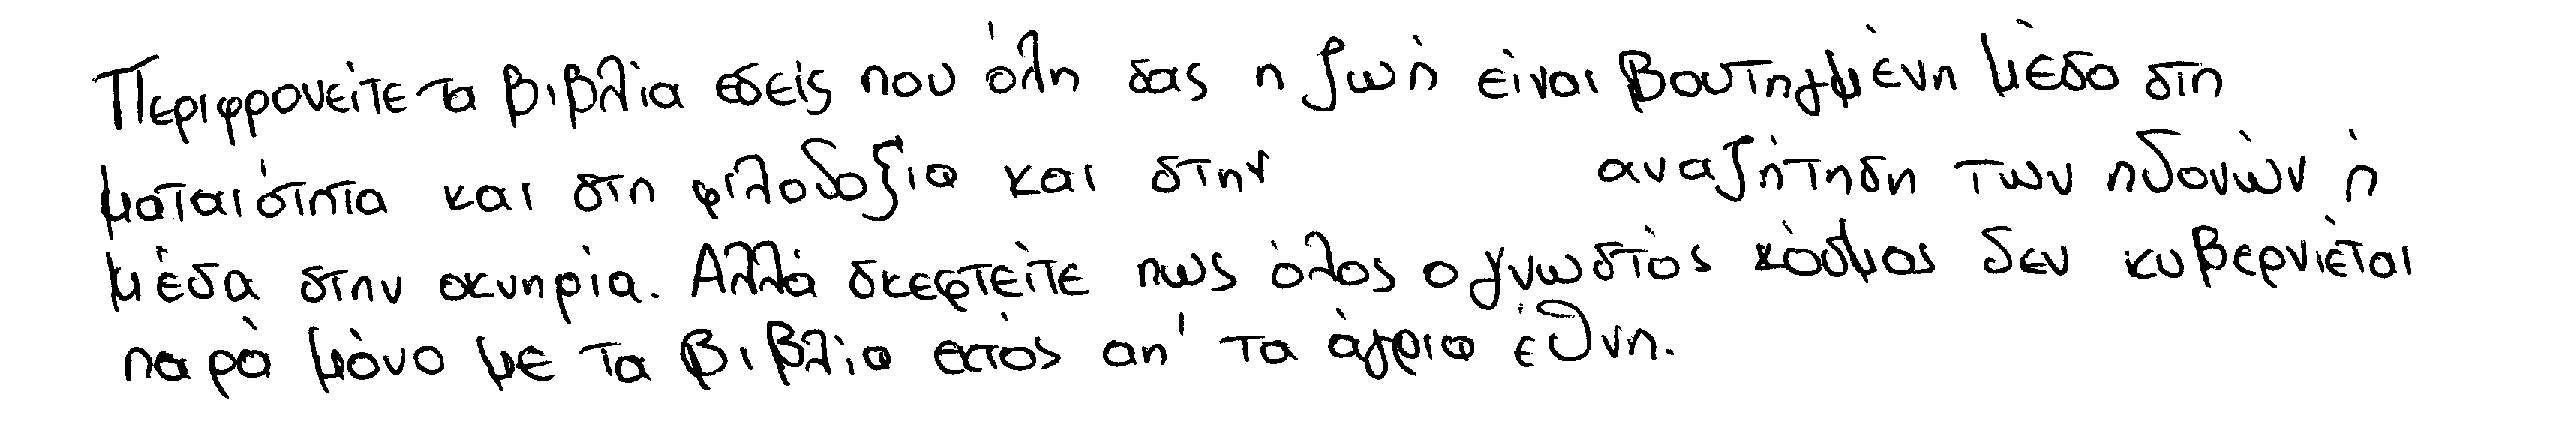 Περιφρονείτε τα βιβλία εσείς που όλη σας η ζωή είναι βουτηγμένη μέσα στη
ματαιότητα και στη φιλοδοξία και στην αναζήτηση των ηδονών ή
μέσα στην οκνηρία. Αλλά σκεφτείτε πως όλος ο γνωστός κόσμος δεν κυβερνιέται
παρά μόνο με τα βιβλία εκτός απ' τα άγρια έθνη.